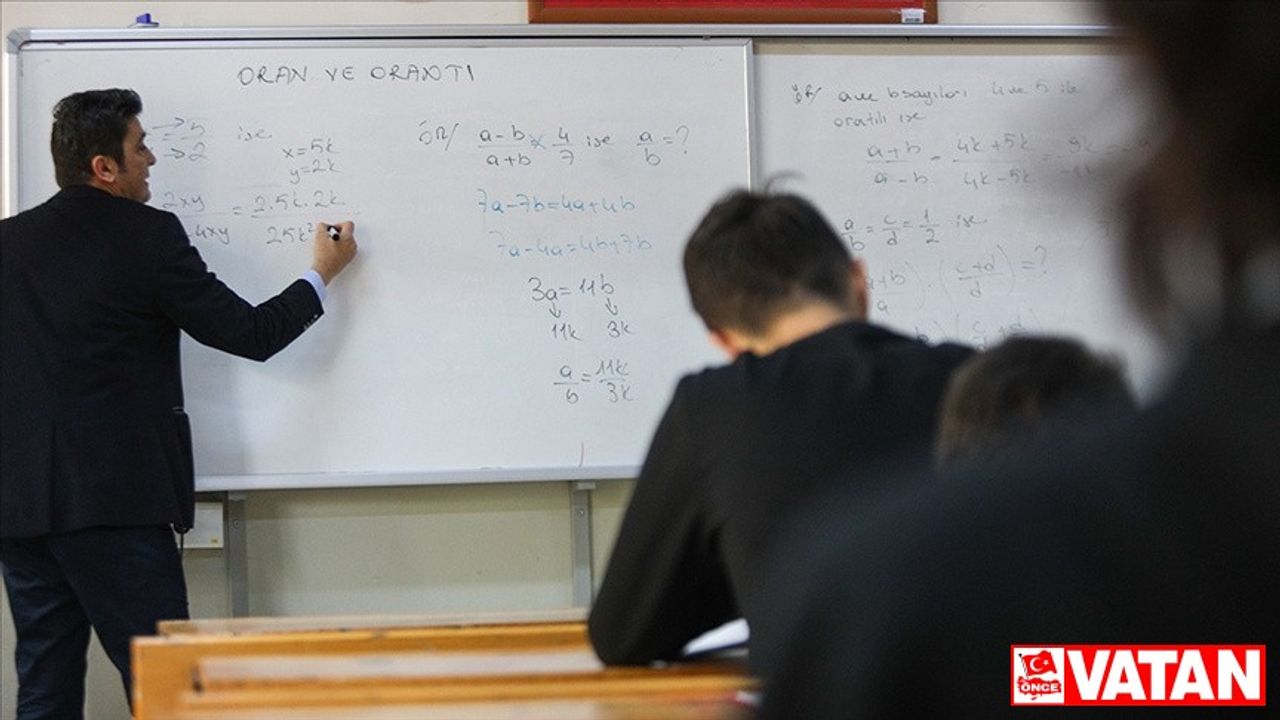 ORAN VE ORANTI
5
2
ise
x=5k
y=2k
2xy
4xy
= 2.5k.2k
25k²
ÖR/ a-b/a+b x 4/7 ise a/b=?
7a-7b=4a+4b
7a-4a=4b+7b
3a=11b
11k 3k
a/b=11k/3k
ÖR/ a ve b sayıları 4 ve 5 ile
orantılı ise
a+b/a-b = 4k+5k/4k-5k = 9k
a/b = c/d = 1/2 ise
(a+b/a) . (c+d/d) = ?
ÖNCE VATAN